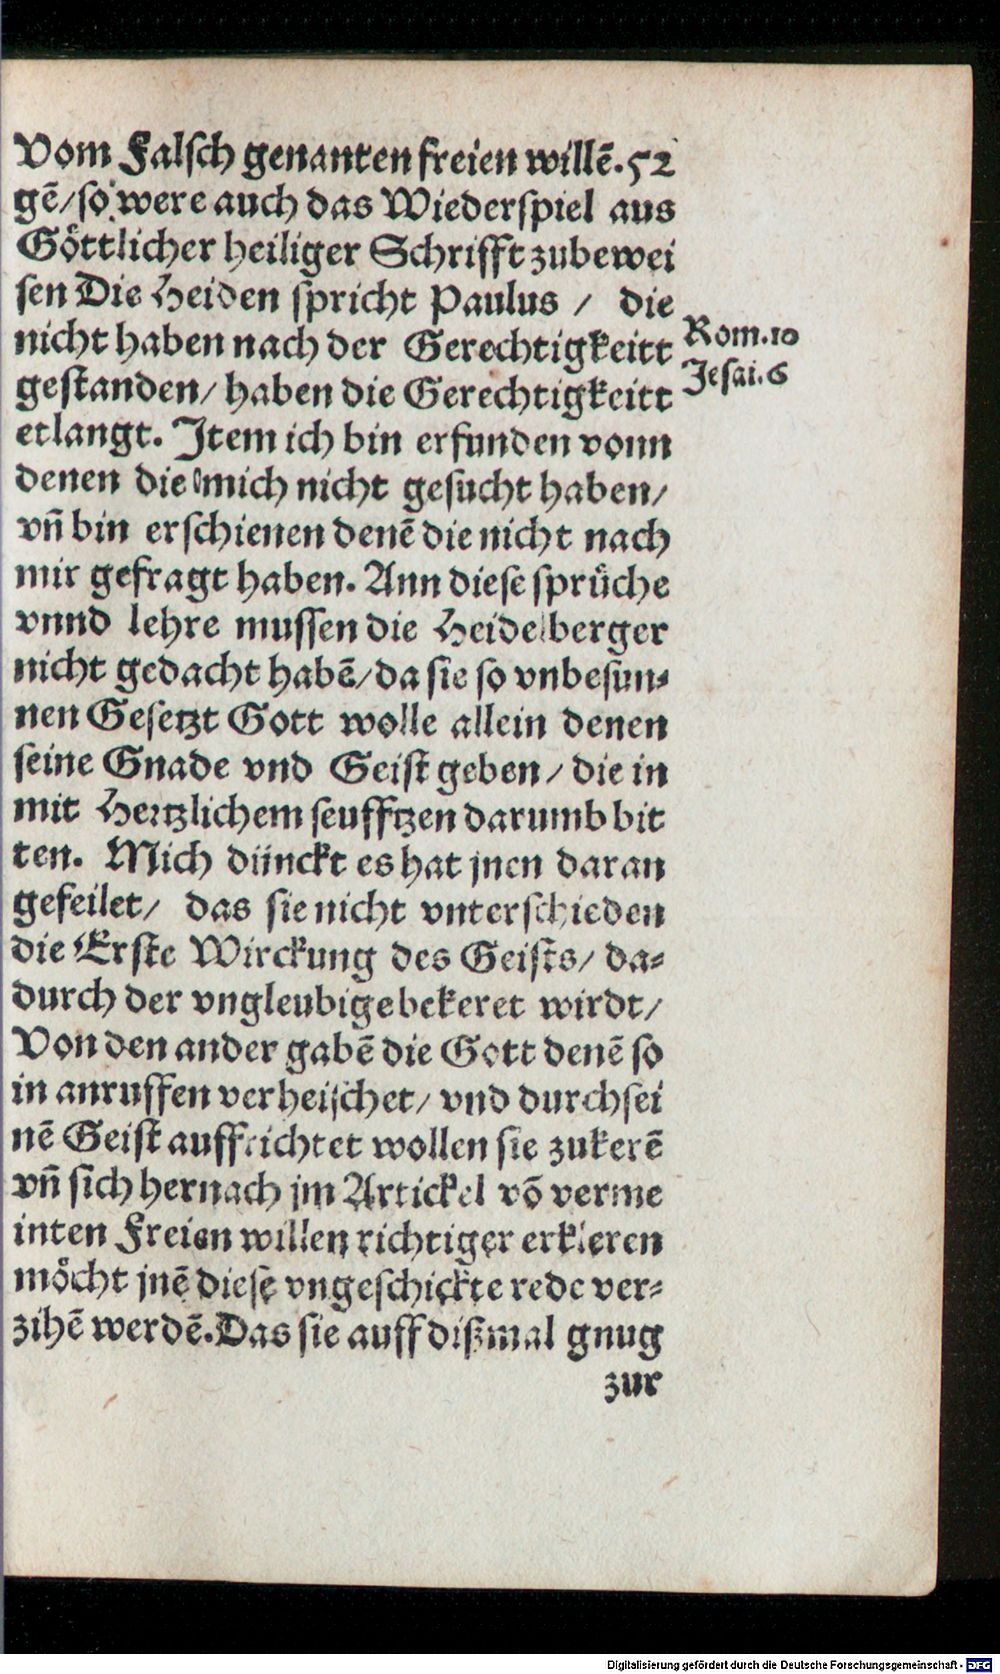 Vom Falsch genanten freien willē. 52
gē/ so were auch das Wiederspiel aus
Göttlicher heiliger Schrifft zubewei
sen Die Heiden spricht Paulus / die
nicht haben nach der Gerechtigkeitt
Rom. 10
gestanden/ haben die Gerechtigkeitt
Jesai. 6
etlangt. Item ich bin erfunden vonn
denen die mich nicht gesucht haben/
vn̄ bin erschienen denē die nicht nach
mir gefragt haben. Ann diese sprüche
vnnd lehre mussen die Heidelberger
nicht gedacht habē/ da sie so vnbesun-
nen Gesetzt Gott wolle allein denen
seine Gnade vnd Geist geben/ die in
mit Hertzlichem seufftzen darumb bit
ten. Mich dünckt es hat jnen daran
gefeilet/ das sie nicht vnterschieden
die Erste Wirckung des Geists/ da-
durch der vngleubige bekeret wirdt/
Von den ander gabē die Gott denē so
in anruffen verheischet/ vnd durch sei
nē Geist auffrichtet wollen sie zukerē
vn̄ sich hernach jm Artickel vō verme
inten Freien willen richtiger erkleren
möcht jnē diese vngeschickte rede ver-
zihē werdē. Das sie auff dißmal gnug
zur
Digitalisierung gefördert durch die Deutsche Forschungsgemeinschaft - DFG